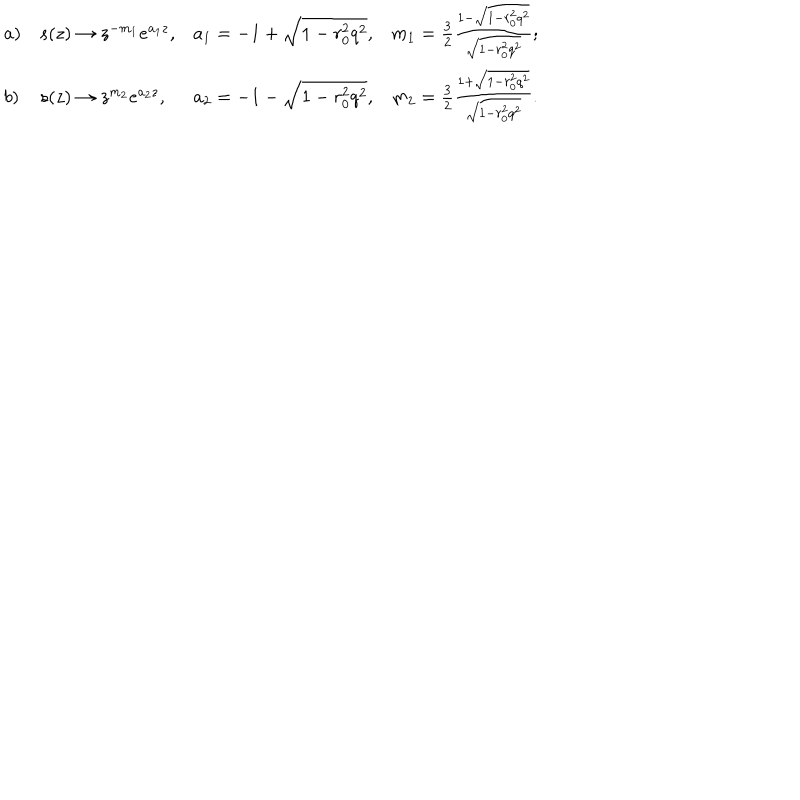 a) s(z) → z^{-m_1} e^{a_1 z}, a_1 = -1 + \sqrt{1 - r_0^2 q^2}, m_1 = \frac{3}{2} \frac{1 - \sqrt{1 - r_0^2 q^2}}{\sqrt{1 - r_0^2 q^2}};
b) s(z) → z^{m_2} e^{a_2 z}, a_2 = -1 - \sqrt{1 - r_0^2 q^2}, m_2 = \frac{3}{2} \frac{1 + \sqrt{1 - r_0^2 q^2}}{\sqrt{1 - r_0^2 q^2}}.